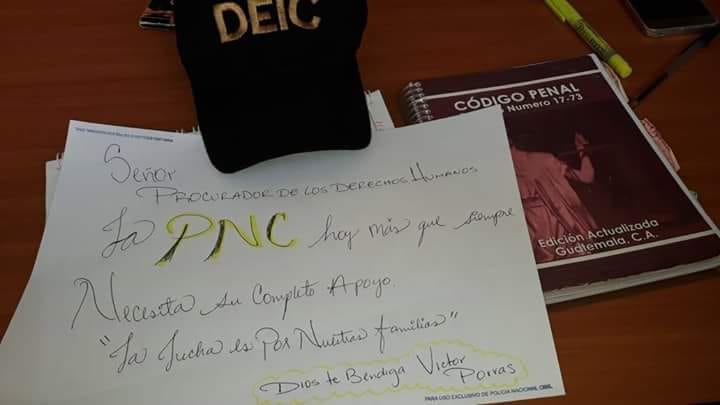 DEIC
CÓDIGO PENAL
Numero 17-73
Edición Actualizada
Guatemala, C.A.
Señor
PROCURADOR DE LOS DERECHOS HUMANOS
La PNC hoy más que siempre
Necesita su Completo Apoyo.
"La Lucha es Por Nuestras familias"
Dios te Bendiga Victor
Porras
PARA USO EXCLUSIVO DE POLICIA NACIONAL CIVIL